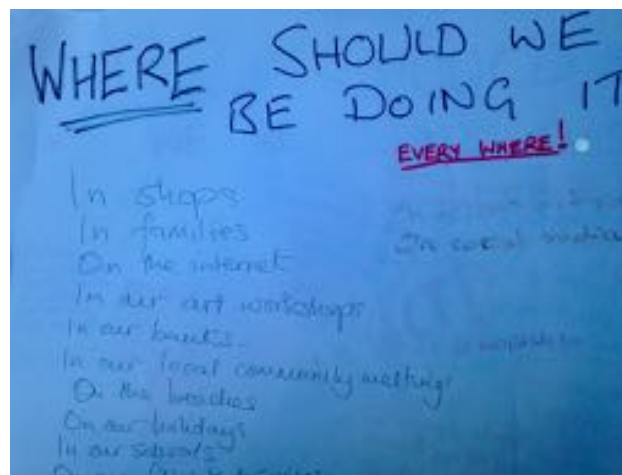 WHERE SHOULD WE
BE DOING IT
EVERY WHERE!
In shops
In families
On the internet
In our art workshops
In our banks
In our local community meetings
On the beaches
On our holidays
In our schools
On social media